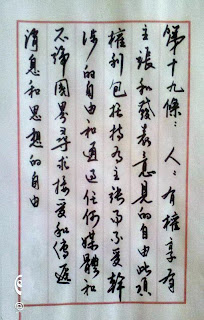 第十九條：人：有權享有
主張和發表意見的自由此項
權利包括持有主張而不受幹
涉的自由和通過任何媒體和
不論國界尋求接受和傳遞
消息和思想的自由